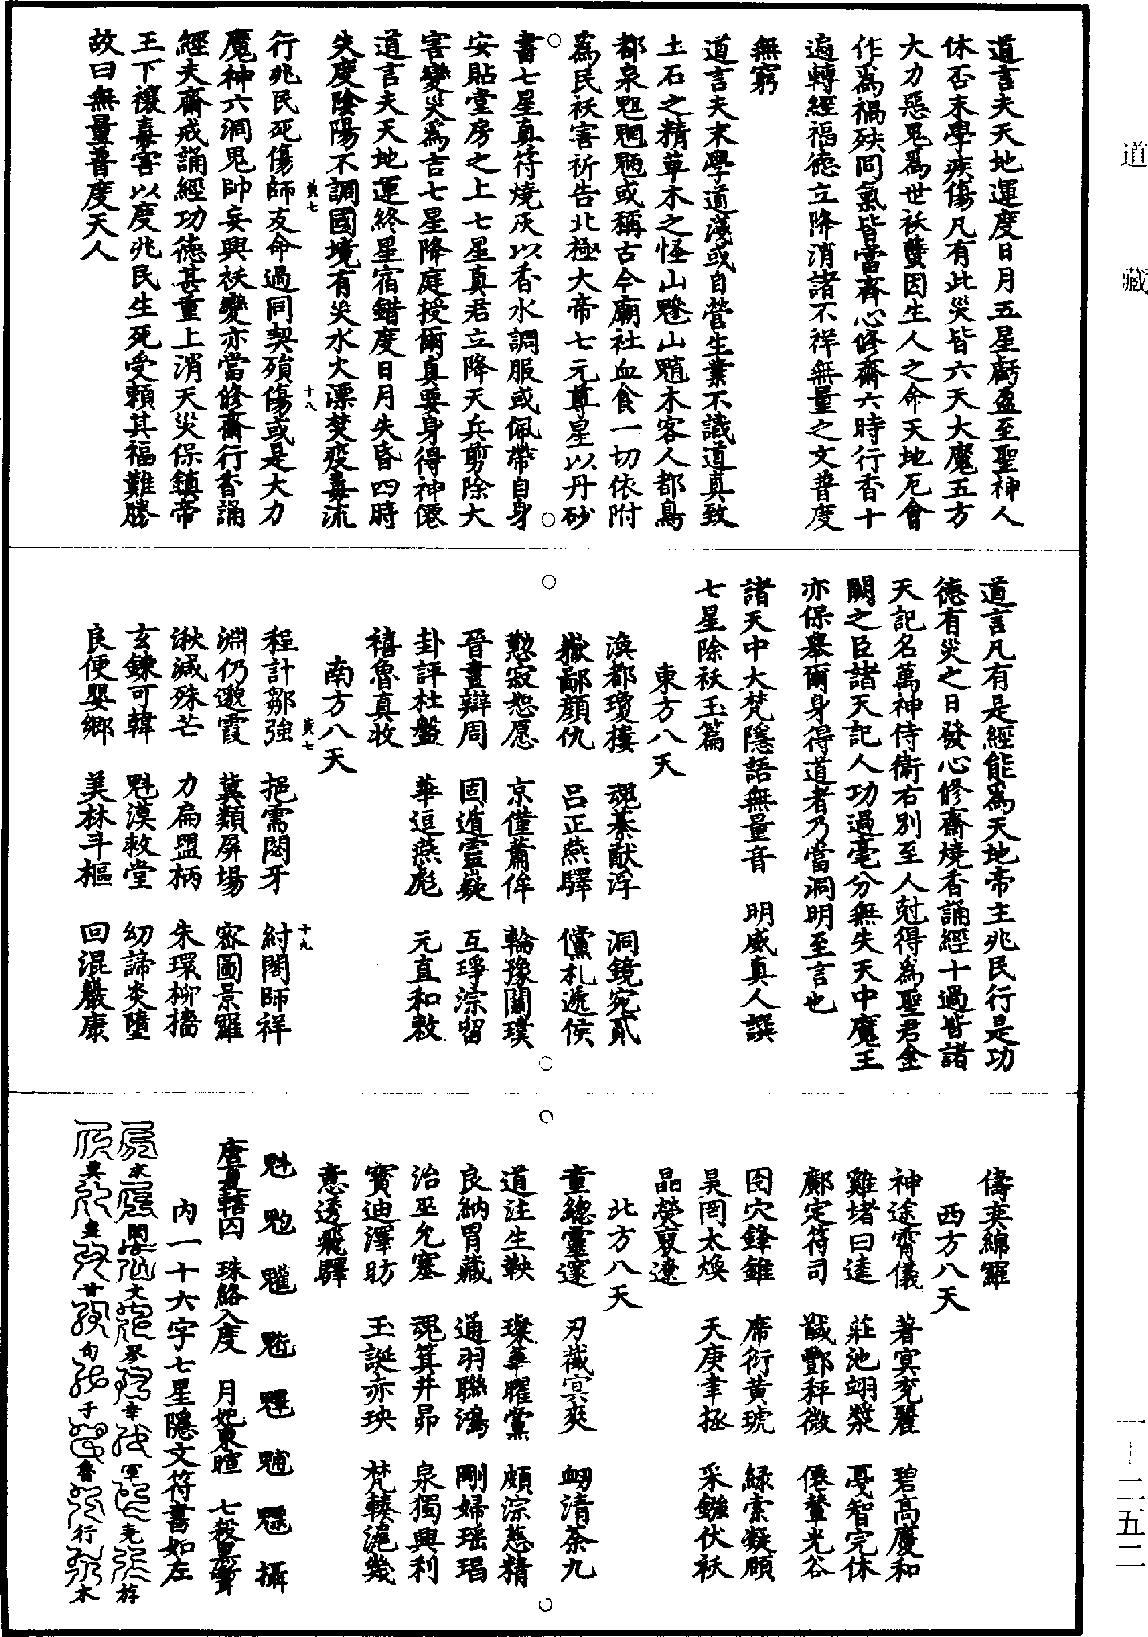 道藏
一—二五二
道言夫天地運度日月五星虧盈至聖神人
休否末學疾傷凡有此災皆六天大魔五方
大力惡鬼為世祅孽因生人之命天地厄會
作為禍殃同氣皆當齊心修齋六時行香十
遍轉經福德立降消諸不祥無量之文普度
無窮
道言夫末學道淺或自營生業不識道真致
土石之精草木之怪山魈山魖木客人都鳥
為民祅害祈告北極大帝七元尊星以丹砂
書七星真符燒灰以香水調服或佩帶自身
安貼堂房之上七星真君立降天兵剪除大
害變災為吉七星降庭授爾真要身得神僊
道言夫天地運終星宿錯度日月失昏四時
失度陰陽不調國境有災水火漂焚疫毒流
行兆民死傷師友命過同契殞傷或是大力
魔神六洞鬼帥妄興祅變亦當修齋行香誦
經夫齋戒誦經功德甚重上消天災保鎮帝
王下禳毒害以度兆民生死受賴其福難勝
故曰無量普度天人
道言凡有是經能為天地帝主兆民行是功
德有災之日發心修齋燒香誦經十過皆諸
天記名萬神侍衛右別至人尅得為聖君金
闕之臣諸天記人功過毫分無失天中魔王
亦保舉爾身得道者乃當洞明至言也
諸天中大梵隱語無量音 明威真人譔
七星除祅玉篇
東方八天
渙都瓊捿 魂綦猷浮 洞鏡宛貳
嶽鄗顏仇 呂正燕驛 儻札遞侯
懃寂恕愿 京僅蕭侔 輪豫闌璞
晉畫辯周 固遁霊嶷 互琤淙留
卦評杜盤 華逗燕彪 元直和敷
禧魯真收
南方八天
程計鄒強 挹需閟牙 紂闍師祥
淵仍邀霞 冀類屏場 密圖景羅
湫減殊芒 力扁盟柄 朱環柳牆
玄鍊可韓 魁漠敕堂 幼諦炎墮
良便嬰鄉 美林斗樞 回混嚴康
儔英綿羅
西方八天
神逵霄儀 著寞兗麗 碧高慶和
難堵曰逵 莊池翊漿 憂智完休
鄺定符司 戩酆秤微 僊輦光谷
圉穴鋒錐 席衍黃琥 綠索凝頤
昊罔太煥 天庚聿拯 采鏹伏祅
晶熒裒遼
北方八天
童總靈邃 刃藏寞爽 衂清荼九
道注生鞅 璨華曜黨 頗淙慈精
良納胃藏 通羽聯鴻 剛婦瑤瑁
治巫允塞 魂箕井昴 泉獨興利
寶迪澤昉 王誕亦玦 梵轅滬幾
意透飛驛
唐夏轄囚 珠絡入度 月妃東暄 七殺黑聲
內一十六字七星隱文符書如左